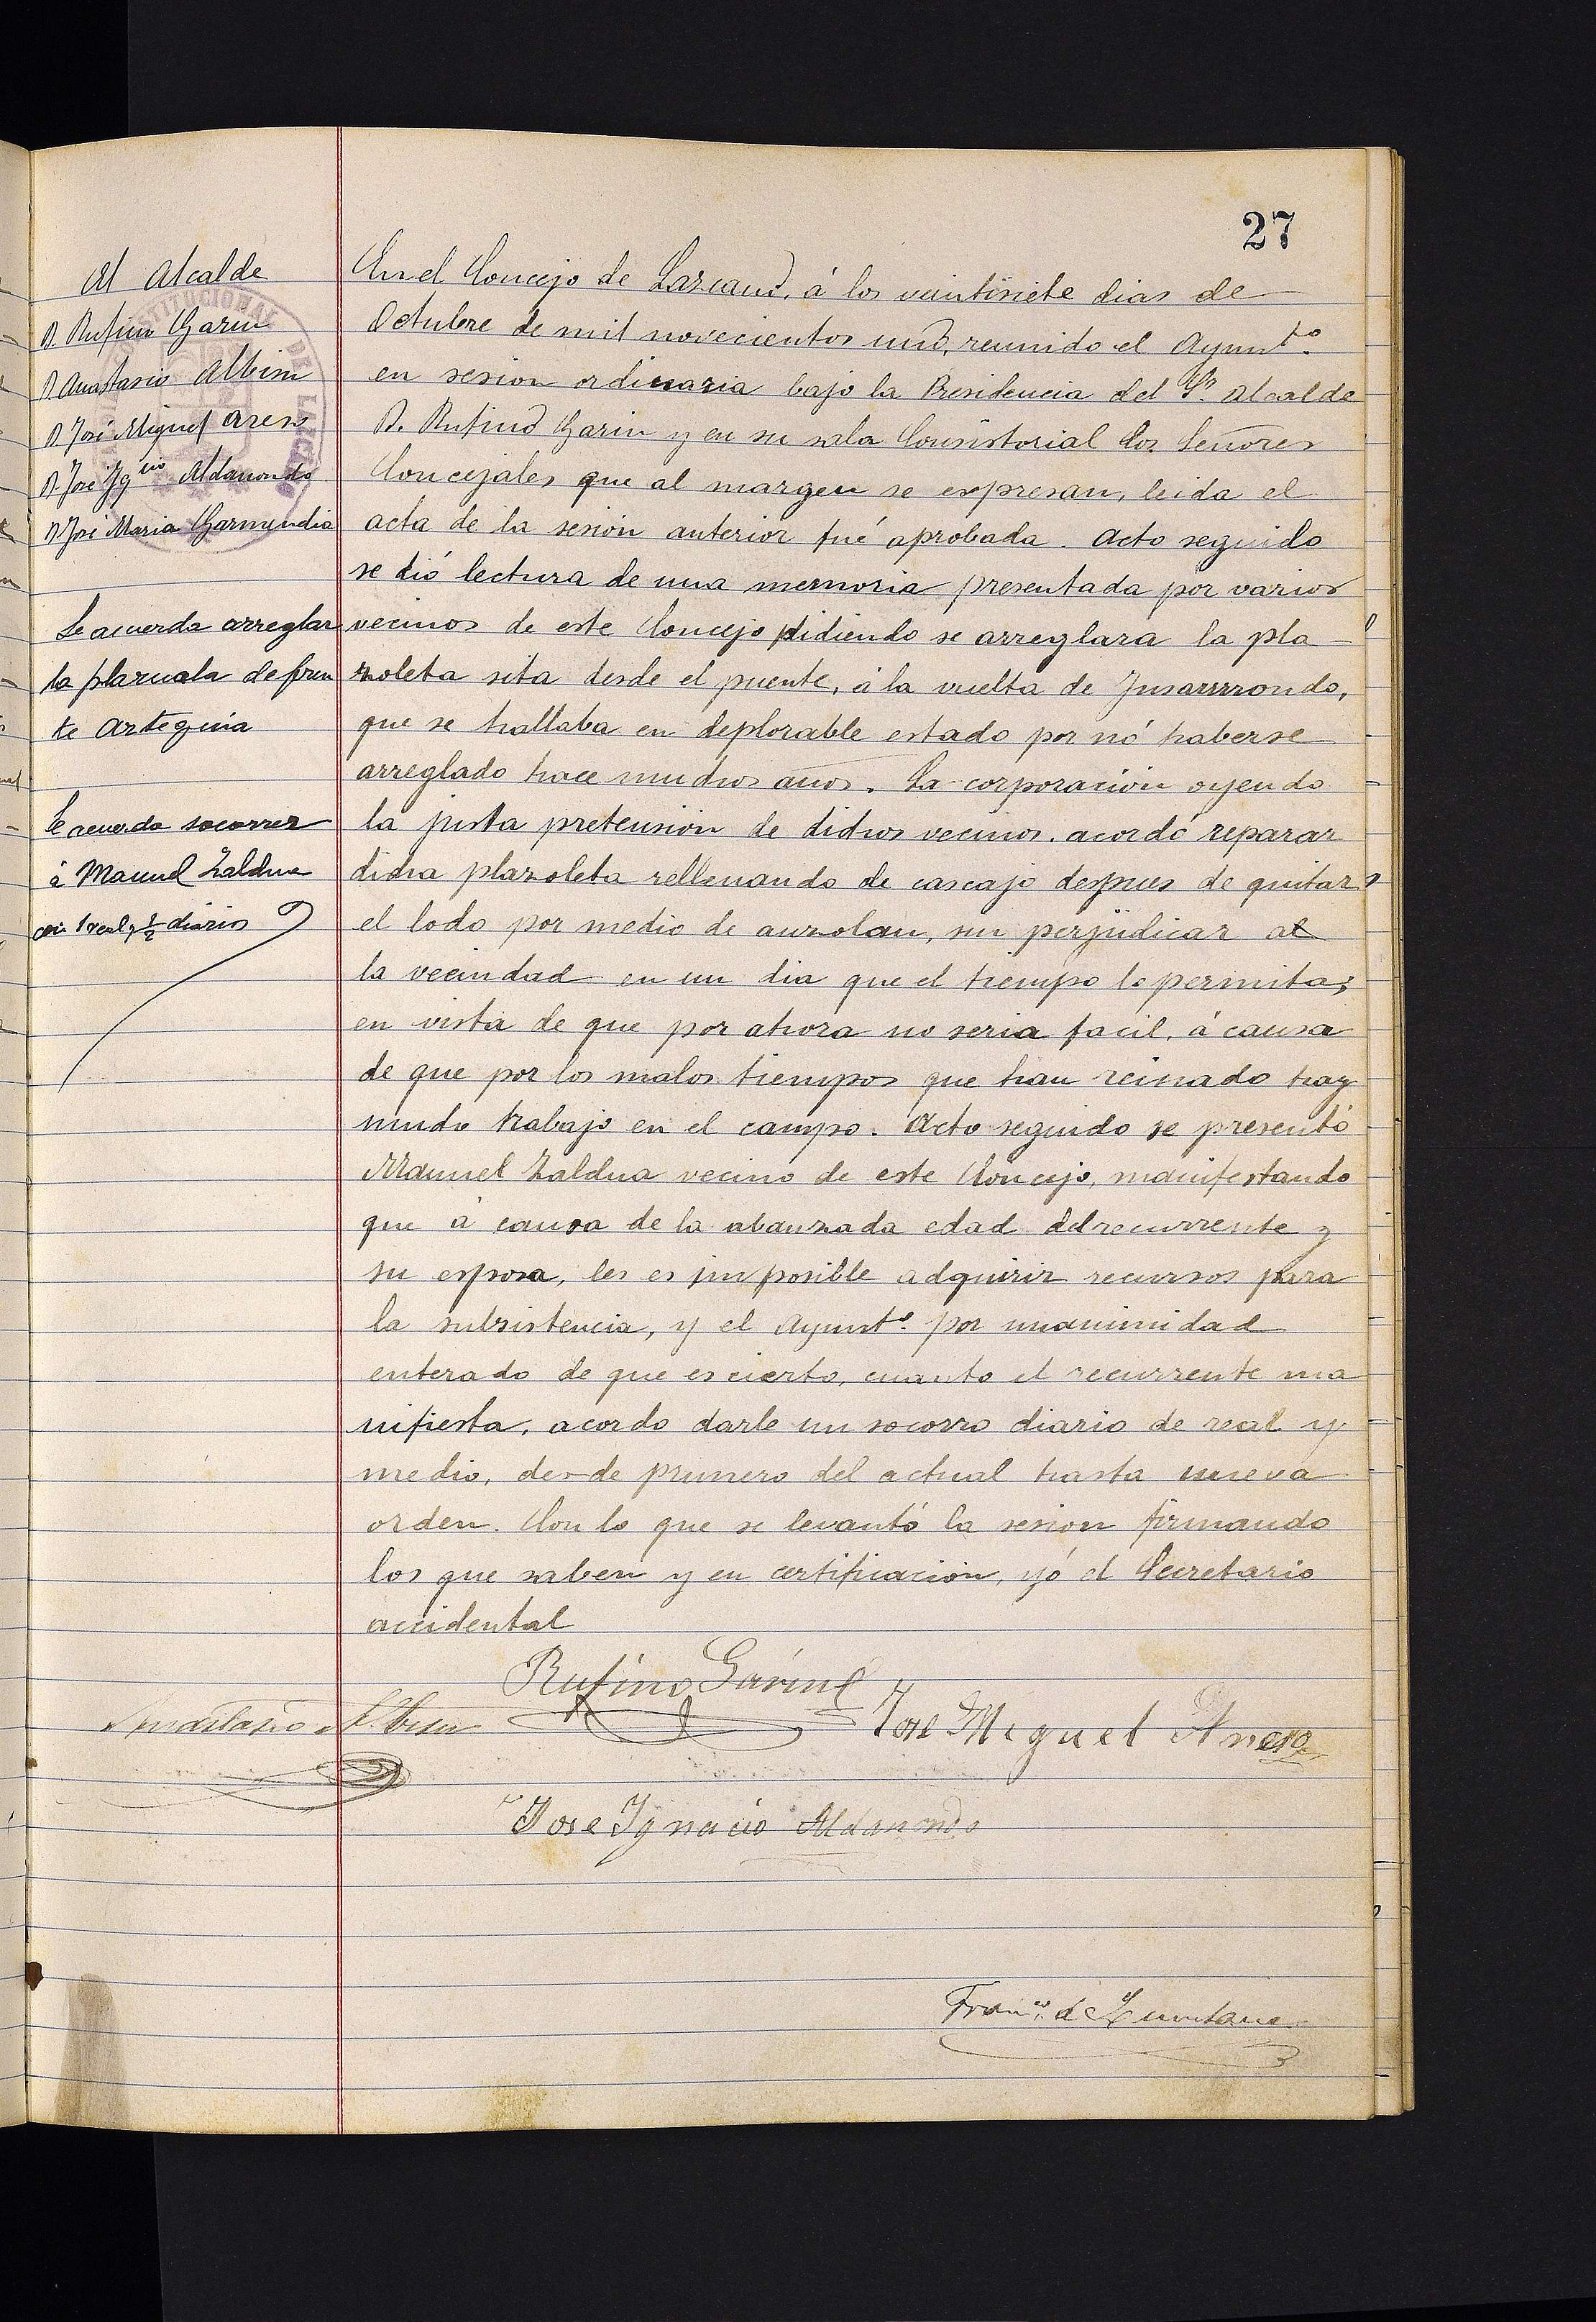 27
El Alcalde
D. Rufino Garin
D Anastasio Albisu
D José Miguel Areso
D José Ygnio Aldanondo
D José Maria Garmendia
Se acuerda arreglar
la plazuela de fren
te Arteguia
Se acuerda socorrer
á Manuel Zaldua
con 1 real y 1/2 diario
En el Concejo de Lazcano, á los veintisiete dias de
Octubre de mil novecientos uno, reunido el Ayunto.
en sesion ordinaria bajo la Presidencia del Sr. Alcalde
D. Rufino Garin y en su sala Consistorial los Señores
Concejales que al margen se expresan, leida el
acta de la sesión anterior fué aprobada. Acto seguido
se dió lectura de una memoria presentada por varios
vecinos de este Concejo pidiendo se arreglara la pla-
zoleta sita desde el puente, á la vuelta de
que se hallaba en deplorable estado por nó haberse
arreglado hace muchos años. La corporación oyendo
la justa pretension de dichos vecinos. acordó reparar
dicha plazoleta rellenando de cascajo despues de quitar
el lodo por medio de auzolan, sin perjudicar a
la vecindad en un dia que el tiempo lo permita;
en vista de que por ahora no seria facil, á causa
de que por los malos tiempos que han reinado hay
mucho trabajo en el campo. Acto seguido se presentó
Manuel Zaldua vecino de este Concejo, manifestando
que á causa de la abanzada edad del recurrente y
su esposa, les es imposible adquirir recursos para
la subsistencia, y el Ayunto. por unanimidad
enterado de que es cierto, cuanto el recurrente ma
nifiesta, acordo darle un socorro diario de real y
medio, desde primero del actual hasta nueva
orden. Con lo que se levantó la sesion firmando
los que saben y en certificación, yó el Secretario
accidental
Rufino Garin
Anastasio Albisu
José Miguel Areso
Jose Ygnacio Aldanondo
Franco. de